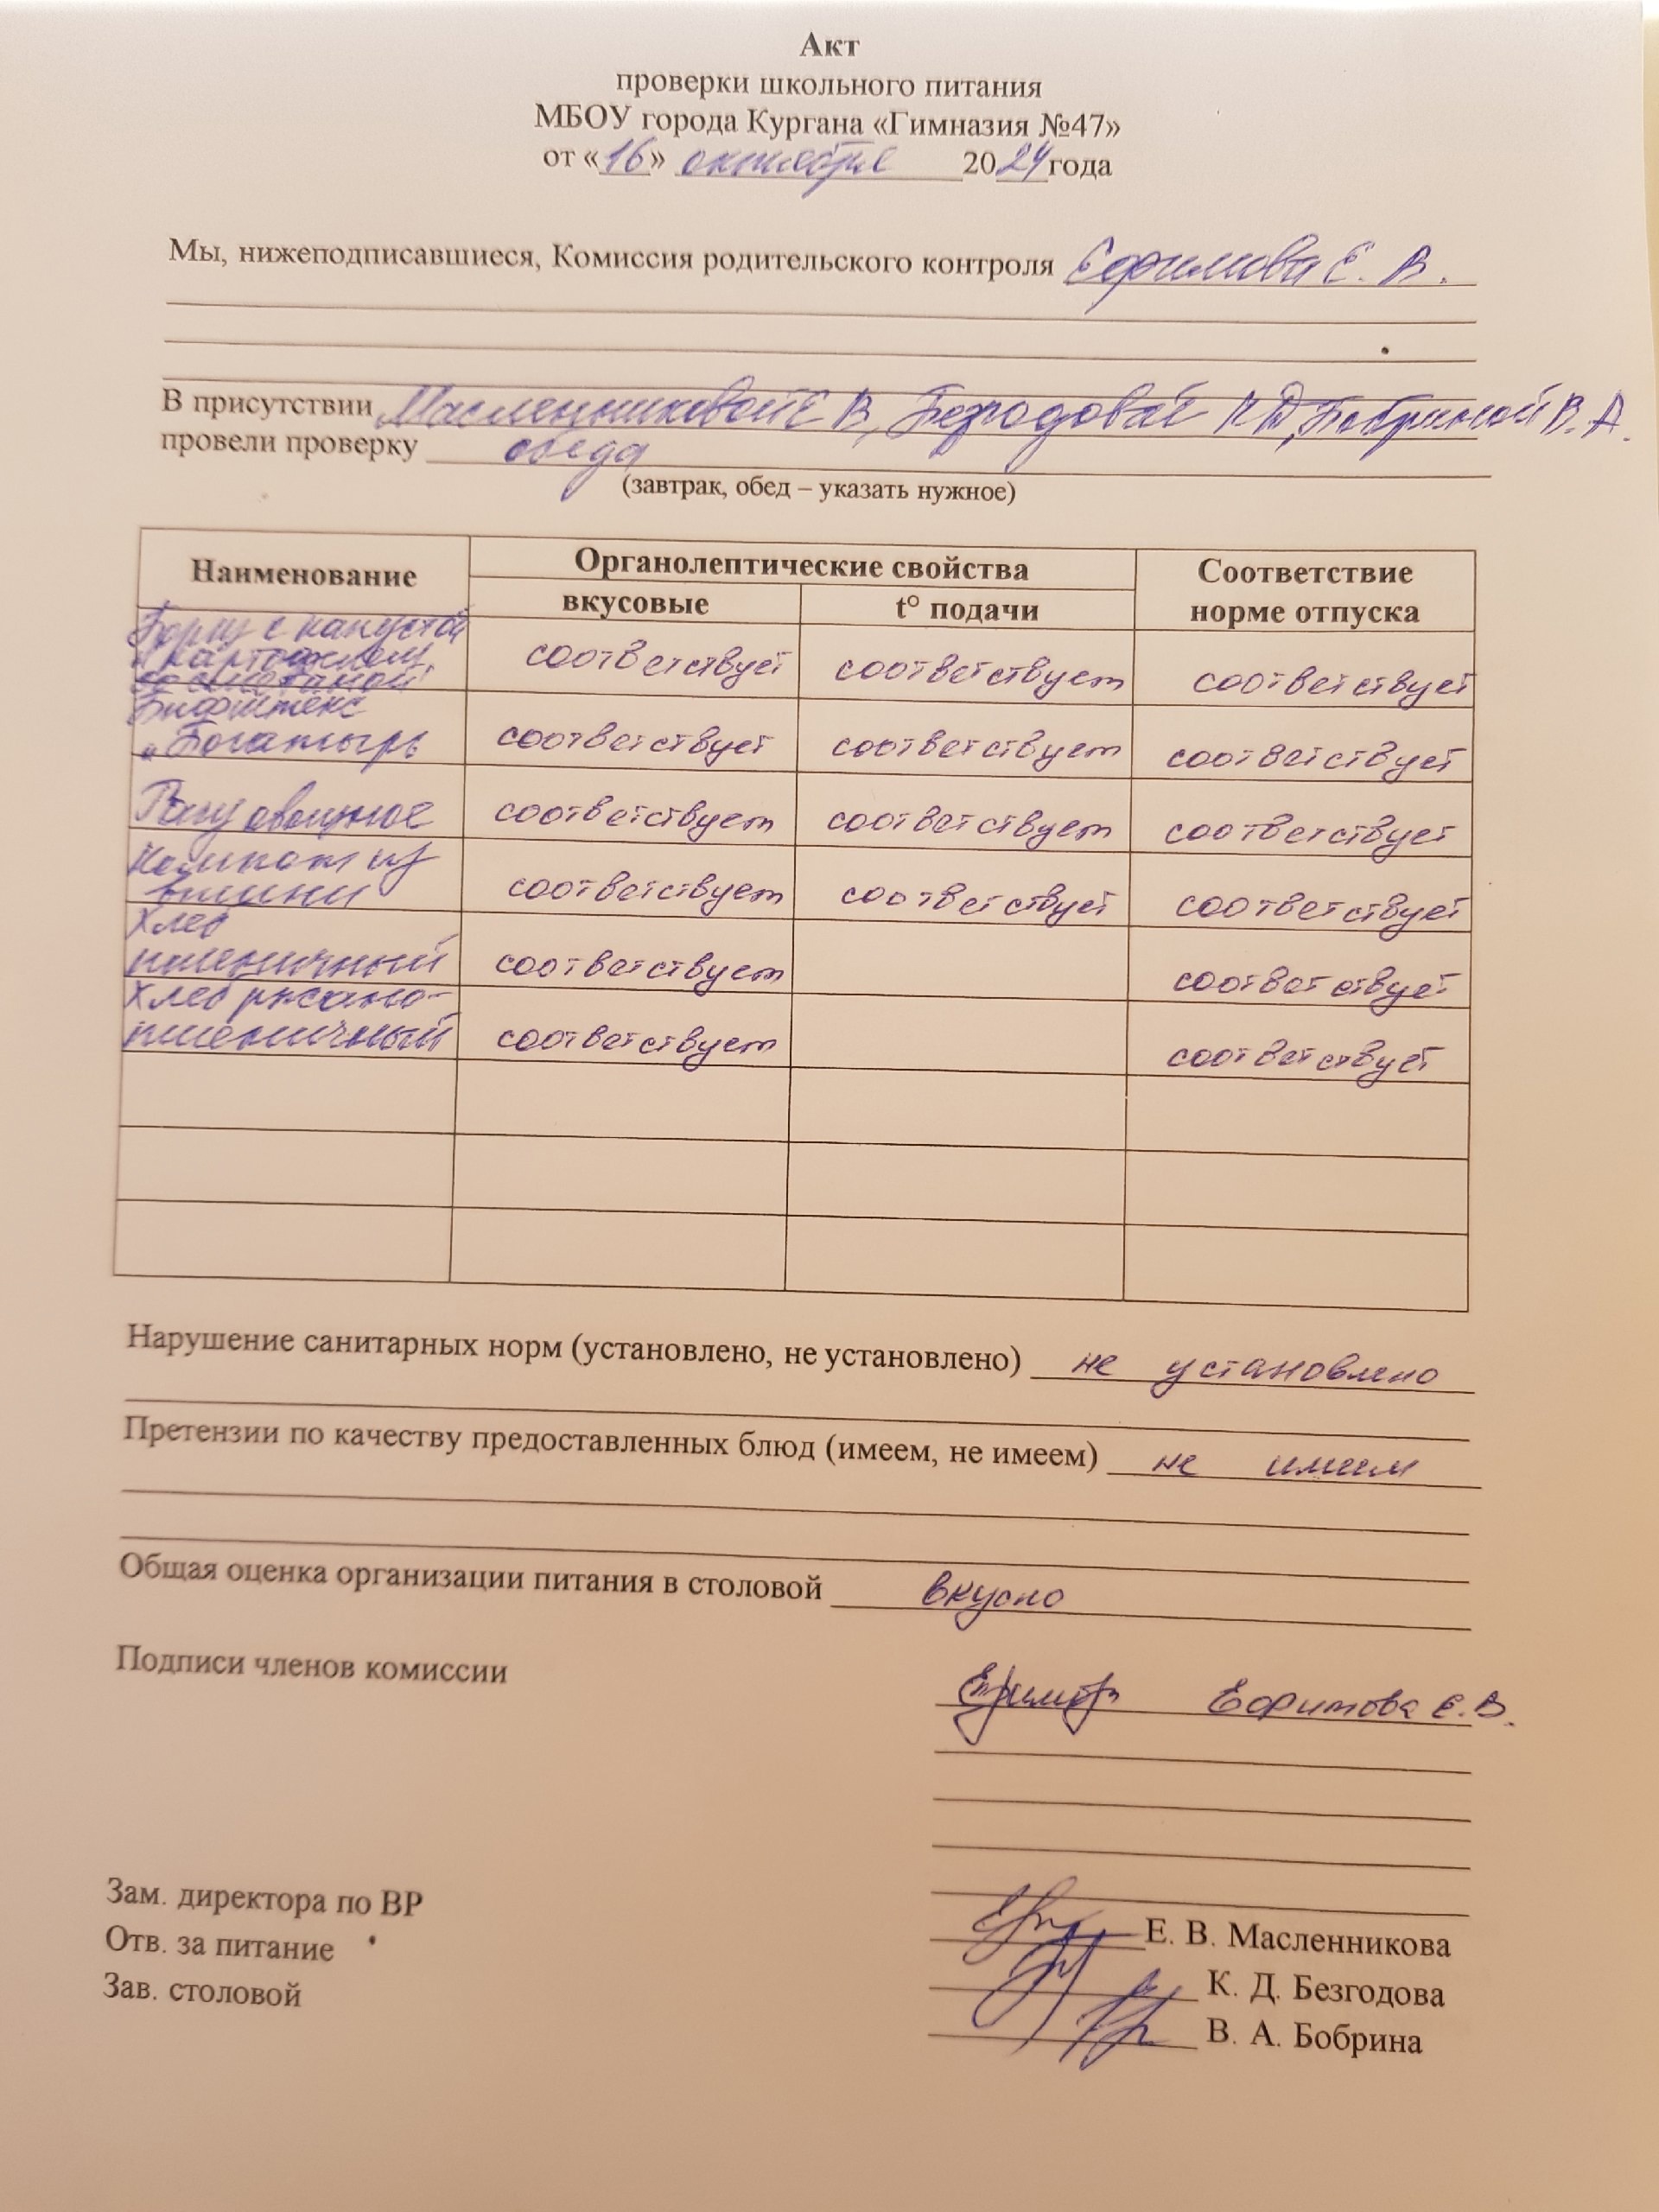 Акт
проверки школьного питания
МБОУ города Кургана «Гимназия №47»
от «16» октября 2024 года
Мы, нижеподписавшиеся, Комиссия родительского контроля Ефимова Е. В.
В присутствии Масленниковой Е В, Безгодовой К Д, Бобриной В. А.
провели проверку обеда
(завтрак, обед – указать нужное)
Наименование Органолептические свойства Соответствие норме отпуска
вкусовые t° подачи
Борщ с капустой
и картофелем,
со сметаной соответствует соответствует соответствует
Бифштекс
"Богатырь соответствует соответствует соответствует
Рагу овощное соответствует соответствует соответствует
Компот из
вишни соответствует соответствует соответствует
Хлеб
пшеничный соответствует соответствует
Хлеб ржано-
пшеничный соответствует соответствует
Нарушение санитарных норм (установлено, не установлено) не установлено
Претензии по качеству предоставленных блюд (имеем, не имеем) не имеем
Общая оценка организации питания в столовой вкусно
Подписи членов комиссии
Ефимова Е.В.
Зам. директора по ВР Е. В. Масленникова
Отв. за питание К. Д. Безгодова
Зав. столовой В. А. Бобрина